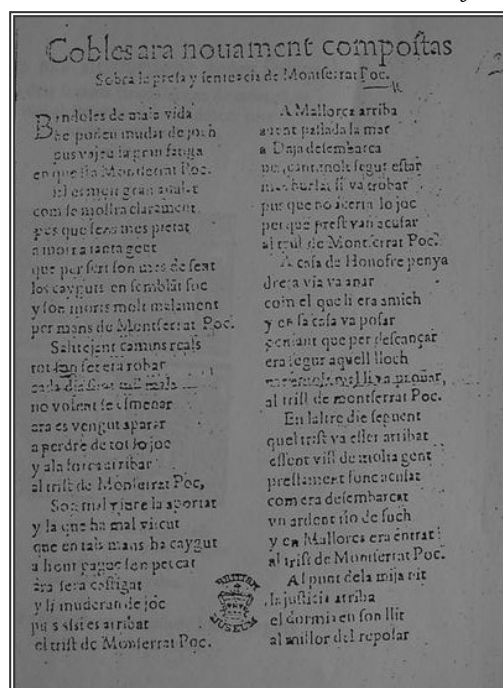 Cobles ara nouament compostas
Sobra la presa y sentencia de Montserrat Poc.
Bandoles de mala vida
be poden mudar de joch
pus vajeu la gran fatiga
en que sta Montserrat Poc.
El es mon gran
com se mostra clarament
pus que sens mes pietat
a morta tanta gent
que per sert son mes de sent
los cayguts en semblãt foc
y son morts molt malament
per mans de Montserrat Poc.
Saltejant camins reals
tot lan fet era robar
cada dia mil mals
no volent se esmenar
ara es vengut a parar
a perdre de tot lo joc
y a la forca arribar
al trist de Montserrat Poc,
Son mal viure la aportat
y la que ha mal viscut
que en tals mans ha caygut
a hont pague son peccat
ara sera castigat
y li mudaran de joc
pus assi es arribat
el trist de Monserrat Poc.
A Mallorca arriba
auent passada la mar
a Daja desembarca
segur estar
burlat si va trobar
pus que no lo joc
perque prest van acusar
al trist de Montserrat Poc.
A casa de Honofre penya
dreta via va anar
com el que li era amich
y en sa casa va posar
pensant que per descançar
era segur aquell lloch
al trist de montserrat Poc.
En laltre die seguent
quel trist va esser arribat
essent vist de molta gent
prestament fonc acusat
com era desembarcat
vn ardent tio de foch
y en Mallorca era entrat
al trist de Montserrat Poc.
Al punt dela mija nit
la justicia arriba
el dormia en son llit
al millor del repolar
BRITISH MUSEUM